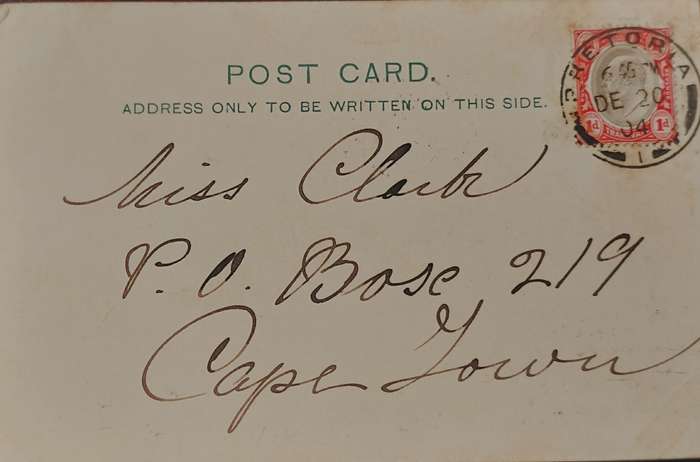 POST CARD.
ADDRESS ONLY TO BE WRITTEN ON THIS SIDE.
PRETORIA
DE 20
04
1
1d 1d
Miss Clark
P. O. Box 219
Cape Town